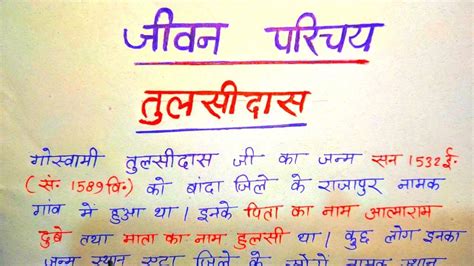 जीवन परिचय
तुलसीदास
गोस्वामी तुलसीदास जी का जन्म सन 1532 ई॰
( सं॰ 1589 वि॰) को बांदा जिले के राजापुर नामक
गांव मे हुआ था। इनके पिता का नाम आत्माराम
दुबे तथा माता का नाम हुलसी था। कुछ लोग इनका
जन्म स्थान एटा जिले के सोरों नामक स्थान